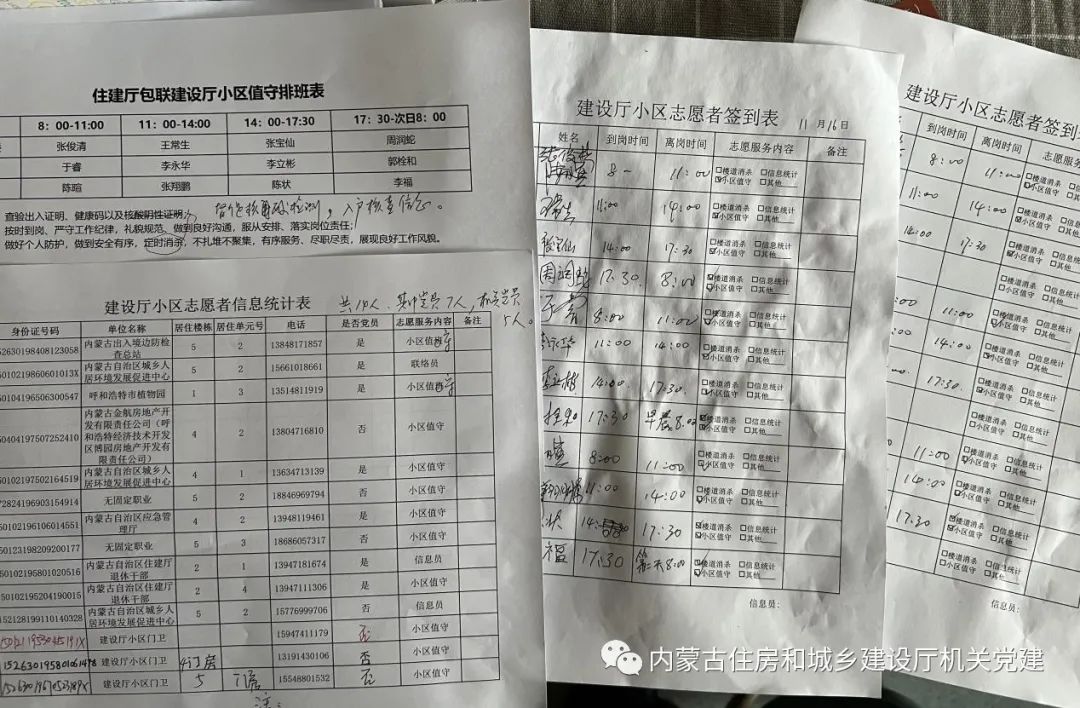 住建厅包联建设厅小区值守排班表
8：00-11:00 11：00-14:00 14：00-17:30 17：30-次日8：00
张俊清 王常生 张宝仙 周润蛇
于睿 李永华 李立彬 郭栓和
陈瑄 张翔鹏 陈状 李福
查验出入证明、健康码以及核酸阴性证明；
入户核查信息。
按时到岗、严守工作纪律，礼貌规范、做到良好沟通，服从安排、落实岗位责任；
做好个人防护，做到安全有序，定时消杀，不扎堆不聚集，有序服务、尽职尽责，展现良好工作风貌。
建设厅小区志愿者信息统计表
5人。
身份证号码 单位名称 居住楼栋 居住单元号 电话 是否党员 志愿服务内容 备注
52630198408123058 内蒙古出入境边防检查总站 5 2 13848171857 是 小区值守
5010219860601013X 内蒙古自治区城乡人居环境发展促进中心 5 2 15661018661 是 联络员
50104196506300547 呼和浩特市植物园 1 3 13514811919 是 小区值守
50404197507252410 内蒙古金航房地产开发有限责任公司（呼和浩特经济技术开发区博园房地产开发有限责任公司） 4 2 13804716810 否 小区值守
50102197502164519 内蒙古自治区城乡人居环境发展促进中心 4 1 13634713139 是 小区值守
72824196903154914 无固定职业 5 2 18846969794 否 小区值守
50102196106014551 内蒙古自治区应急管理厅 4 2 13948119461 是 小区值守
50123198209200177 无固定职业 5 3 18686057317 否 小区值守
50102195801020516 内蒙古自治区住建厅退休干部 2 1 13947181674 是 信息员
50102195204190015 内蒙古自治区住建厅退休干部 2 4 13947111306 是 小区值守
152128199110140328 内蒙古自治区城乡人居环境发展促进中心 5 2 15776999706 否 信息员
建设厅小区门卫 15947411179 否 小区值守
建设厅小区门卫 13191430106 否 小区值守
建设厅小区门卫 5 15548801532 否 小区值守
建设厅小区志愿者签到表 11月16日
姓名 到岗时间 离岗时间 志愿服务内容 备注
8- 11:00 楼道消杀 信息统计 小区值守 其他
11:00 14:00 楼道消杀 信息统计 小区值守 其他
14:00 17:30 楼道消杀 信息统计 小区值守 其他
17:30 8:00 楼道消杀 信息统计 小区值守 其他
8:00 11:00 楼道消杀 信息统计 小区值守 其他
11:00 14:00 楼道消杀 信息统计 小区值守 其他
14:00 17:30 楼道消杀 信息统计 小区值守 其他
17:30 早晨8:00 楼道消杀 信息统计 小区值守 其他
8:00 11:00 楼道消杀 信息统计 小区值守 其他
11:00 14:00 楼道消杀 信息统计 小区值守 其他
17:30 楼道消杀 信息统计 小区值守 其他
福 17:30 第二天8:00 楼道消杀 信息统计 小区值守 其他
信息员：
建设厅小区志愿者签到
到岗时间 离岗时间 志愿服
8:00 11:00 楼道消杀 小区值守
11:00 14:00 楼道消杀 信 小区值守
14:00 17:30 楼道消杀 信息 小区值守 其他
楼道消杀 信息统 小区值守 其他
:00 11:00 楼道消杀 信息统 小区值守 其他
:00 14:00 楼道消杀 信息统 小区值守 其他
17:30 楼道消杀 信息统 小区值守 其他
楼道消杀 信息统计 小区值守 其他
11:00 楼道消杀 信息统计 小区值守 其他
14:00 楼道消杀 信息统计 小区值守 其他
17:30 楼道消杀 信息统计 小区值守 其他
楼道消杀 信息统计 小区值守 其他
信息员：
内蒙古住房和城乡建设厅机关党建